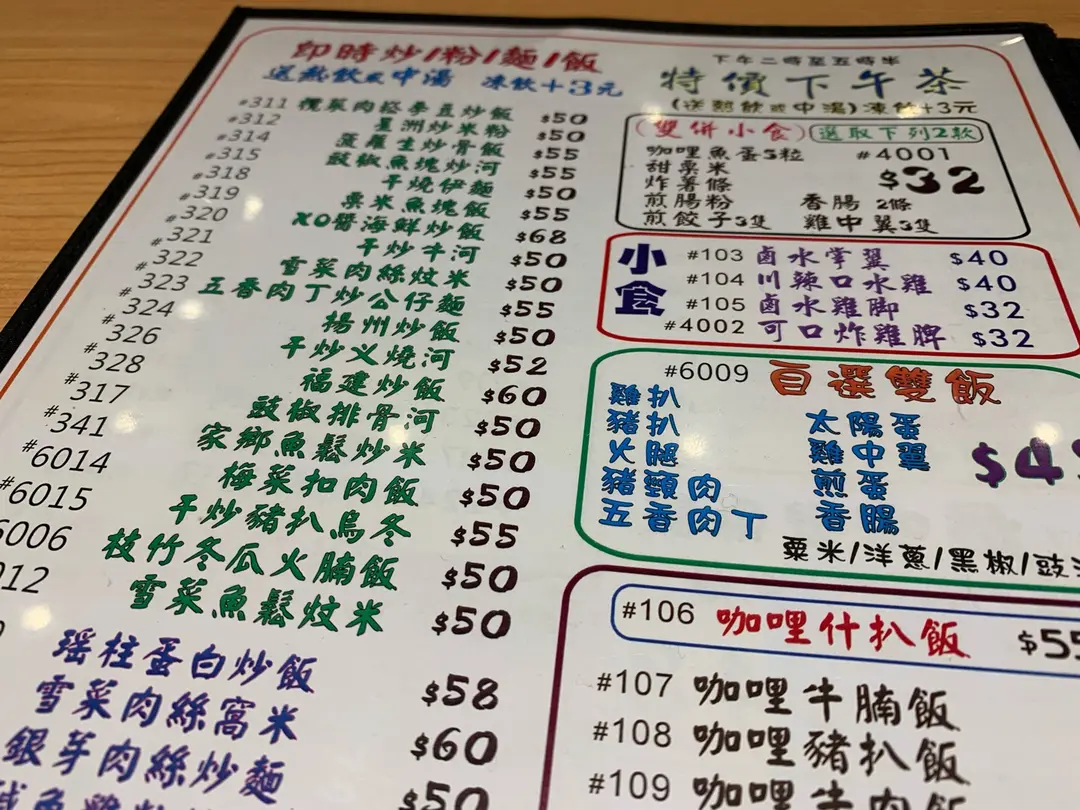 即時炒/粉/麵/飯
送熱飲或中湯 凍飲+3元
#311 欖菜肉崧拳豆炒飯 $50
#312 星洲炒米粉 $50
#314 菠蘿生炒骨飯 $55
#315 豉椒魚塊炒河 $55
#318 干燒伊麵 $50
#319 粟米魚塊飯 $55
#320 XO醬海鮮炒飯 $68
#321 干炒牛河 $50
#322 雪菜肉絲炆米 $50
#323 五香肉丁炒公仔麵 $55
#324 揚州炒飯 $50
#326 干炒义燒河 $52
#328 福建炒飯 $60
#317 豉椒排骨河 $50
#341 家鄉魚鬆炒米 $50
#6014 梅菜扣肉飯 $50
#6015 干炒豬扒烏冬 $55
6006 枝竹冬瓜火腩飯 $50
012 雪菜魚鬆炆米 $50
瑤柱蛋白炒飯 $58
雪菜肉絲窩米 $60
銀芽肉絲炒麵 $50
下午二時至五時半
特價下午茶
(送熱飲或中湯)凍飲+3元
(雙併小食) 選取下列2款
咖哩魚蛋5粒 #4001
甜粟米 $32
炸薯條
煎腸粉 香腸 2條
煎餃子3隻 雞中翼3隻
小食
#103 鹵水掌翼 $40
#104 川辣口水雞 $40
#105 鹵水雞脚 $32
#4002 可口炸雞脾 $32
#6009 自選雙飯
雞扒
豬扒 太陽蛋
火腿 雞中翼
豬頸肉 煎蛋
五香肉丁 香腸
粟米/洋蔥/黑椒/豉
#106 咖哩什扒飯 $55
#107 咖哩牛腩飯
#108 咖哩豬扒飯
#109 咖哩牛肉飯